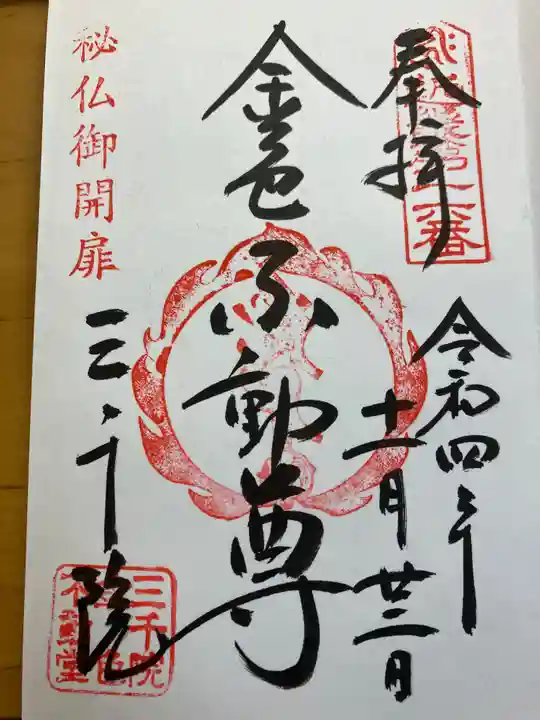 奉拝
令和四年
十一月廿三日
金色不動尊
秘仏御開扉
三千院
三千院
不動堂